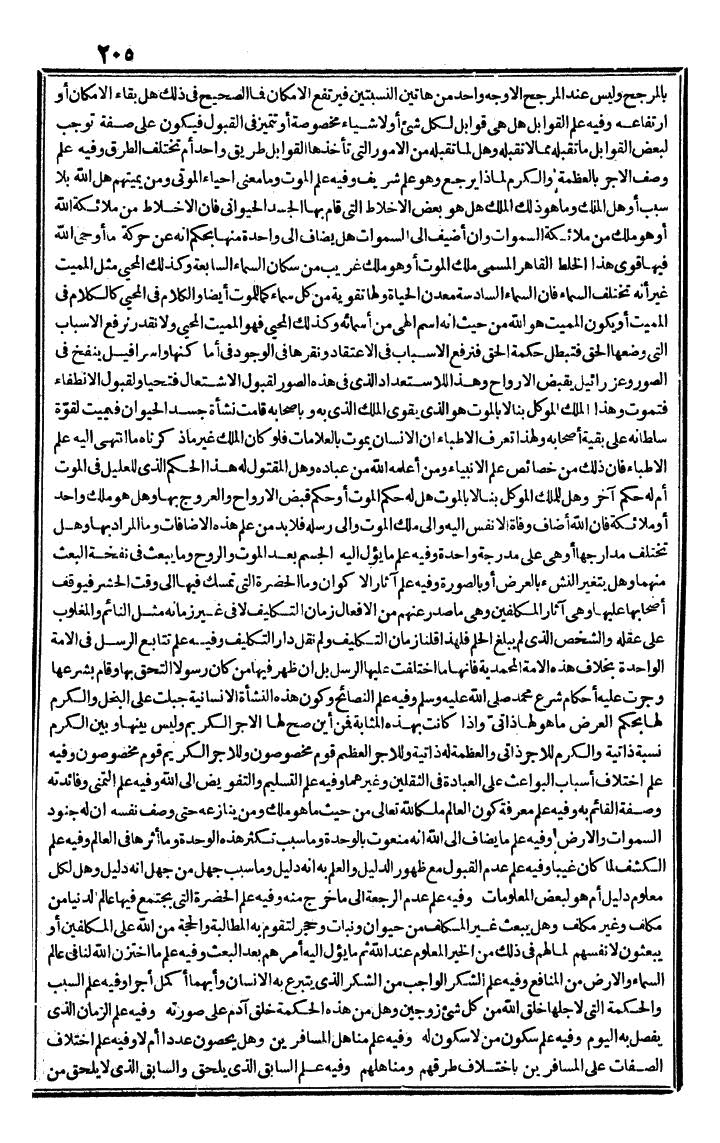 ٢٠٥
بالمرجح وليس عند المرجح الاوجه واحد من هاتين النسبتين فيرتفع الامكان فما الصحيح فى ذلك هل بقاء الامكان أو
ارتفاعه وفيه علم القوابل هل هى قوابل لكل شئ أو لاشياء مخصوصة أو تتميز فى القبول فيكون على صفة توجب
لبعض القوابل ما تقبله مما لا تقبله وهل لما تقبله من الامور التى تأخذها القوابل طريق واحد أم تختلف الطرق وفيه علم
وصف الاجر بالعظمة والكرم لماذا يرجع وهو علم شريف وفيه علم الموت وما معنى احياء الموتى ومن يميتهم هل الله بلا
سبب أو هل الملك وما هو ذلك الملك هل هو بعض الاخلاط التى قام بها الجسد الحيوانى فان الاخلاط من ملائكة الله
أو هو ملك من ملائكة السموات وان أضيف الى السموات هل يضاف الى واحدة منها بحكم انه عن حركة ما أوحى الله
فيها قوى هذا الخلط القاهر المسمى ملك الموت أو هو ملك غريب من سكان السماء السابعة وكذلك المحيى مثل المميت
غير أنه تختلف السماء فان السماء السادسة معدن الحياة ولها تقوية من كل سماء كما للموت أيضا والكلام فى المحيى كالكلام فى
المميت أو يكون المميت هو الله من حيث انه اسم الهى من أسمائه وكذلك المحيى فهو المميت المحيى ولا نقدر نرفع الاسباب
التى وضعها الحق فتبطل حكمة الحق فنرفع الاسباب فى الاعتقاد ونقرها فى الوجود فى أماكنها واسرافيل ينفخ فى
الصور وعزرائيل يقبض الارواح وهذا للاستعداد الذى فى هذه الصور لقبول الاشتعال فتحيا ولقبول الانطفاء
فتموت وهذا الملك الموكل بنا لابالموت هو الذى يقوى الملك الذى به وباصحابه قامت نشأة جسد الحيوان فيميت لقوّة
سلطانه على بقية أصحابه ولهذا تعرف الاطباء ان الانسان يموت بالعلامات فلو كان الملك غير ما ذكرناه ما انتهى اليه علم
الاطباء فان ذلك من خصائص علم الانبياء ومن أعلمه الله من عباده وهل المقتول له هذا الحكم الذى للعليل فى الموت
أم له حكم آخر وهل للملك الموكل بنا لابالموت هل له حكم الموت أو حكم قبض الارواح والعروج بها وهل هو ملك واحد
أو ملائكة فان الله أضاف وفاة الانفس اليه والى ملك الموت والى رسله فلا بد من علم هذه الاضافات وما المراد بها وهل
تختلف مدارجها أو هى على مدرجة واحدة وفيه علم ما يؤل اليه الجسم بعد الموت والروح وما يبعث فى نفخة البعث
منهما وهل يتغير النشء بالعرض أو بالصورة وفيه علم آثار الاكوان وما الحضرة التى تمسك فيها الى وقت الحشر فيوقف
أصحابها عليها وهى آثار المكلفين وهى ما صدر عنهم من الافعال زمان التكليف لا فى غير زمانه مثل النائم والمغلوب
على عقله والشخص الذى لم يبلغ الحلم فلهذا قلنا زمان التكليف ولم نقل دار التكليف وفيه علم تتابع الرسل فى الامة
الواحدة بخلاف هذه الامة المحمدية فانها ما اختلفت عليها الرسل بل ان ظهر فيها من كان رسولا التحق بها وقام بشرعها
وجرت عليه أحكام شرع محمد صلى الله عليه وسلم وفيه علم النصائح وكون هذه النشأة الانسانية جبلت على البخل والكرم
لها بحكم العرض ما هو لها ذاتى واذا كانت بهذه المثابة فمن أين صح لها الاجر الكريم وليس بينها وبين الكرم
نسبة ذاتية والكرم للاجر ذاتى والعظمة له ذاتية وللاجر العظيم قوم مخصوصون وللاجر الكريم قوم مخصوصون وفيه
علم اختلاف أسباب البواعث على العبادة فى الثقلين وغيرهما وفيه علم التسليم والتفويض الى الله وفيه علم التمنى وفائدته
وصفة القائم به وفيه علم معرفة كون العالم ملكا لله تعالى من حيث ما هو ملك ومن ينازعه حتى وصف نفسه ان له جنود
السموات والارض وفيه علم ما يضاف الى الله انه منعوت بالوحدة وما سبب تكثر هذه الوحدة وما أثرها فى العالم وفيه علم
الكشف لما كان غيبا وفيه علم عدم القبول مع ظهور الدليل والعلم به انه دليل وما سبب جهل من جهل انه دليل وهل لكل
معلوم دليل أم هو لبعض المعلومات وفيه علم عدم الرجعة الى ما خرج منه وفيه علم الحضرة التى يجتمع فيها عالم الدنيا من
مكلف وغير مكلف وهل يبعث غير المكلف من حيوان ونبات وحجر لتقوم به المطالبة والحجة من الله على المكلفين أو
يبعثون لانفسهم لما لهم فى ذلك من الخير المعلوم عند الله ثم ما يؤل اليه أمرهم بعد البعث وفيه علم ما اختزن الله لنا فى عالم
السماء والارض من المنافع وفيه علم الشكر الواجب من الشكر الذى يتبرع به الانسان وأيهما أكمل أجرا وفيه علم السبب
والحكمة التى لاجلها خلق الله من كل شئ زوجين وهل من هذه الحكمة خلق آدم على صورته وفيه علم الزمان الذى
يفصل به اليوم وفيه علم سكون من لا سكون له وفيه علم مناهل المسافرين وهل يحصون عددا أم لا وفيه علم اختلاف
الصفات على المسافرين باختلاف طرقهم ومناهلهم وفيه علم السابق الذى يلحق والسابق الذى لا يلحق من